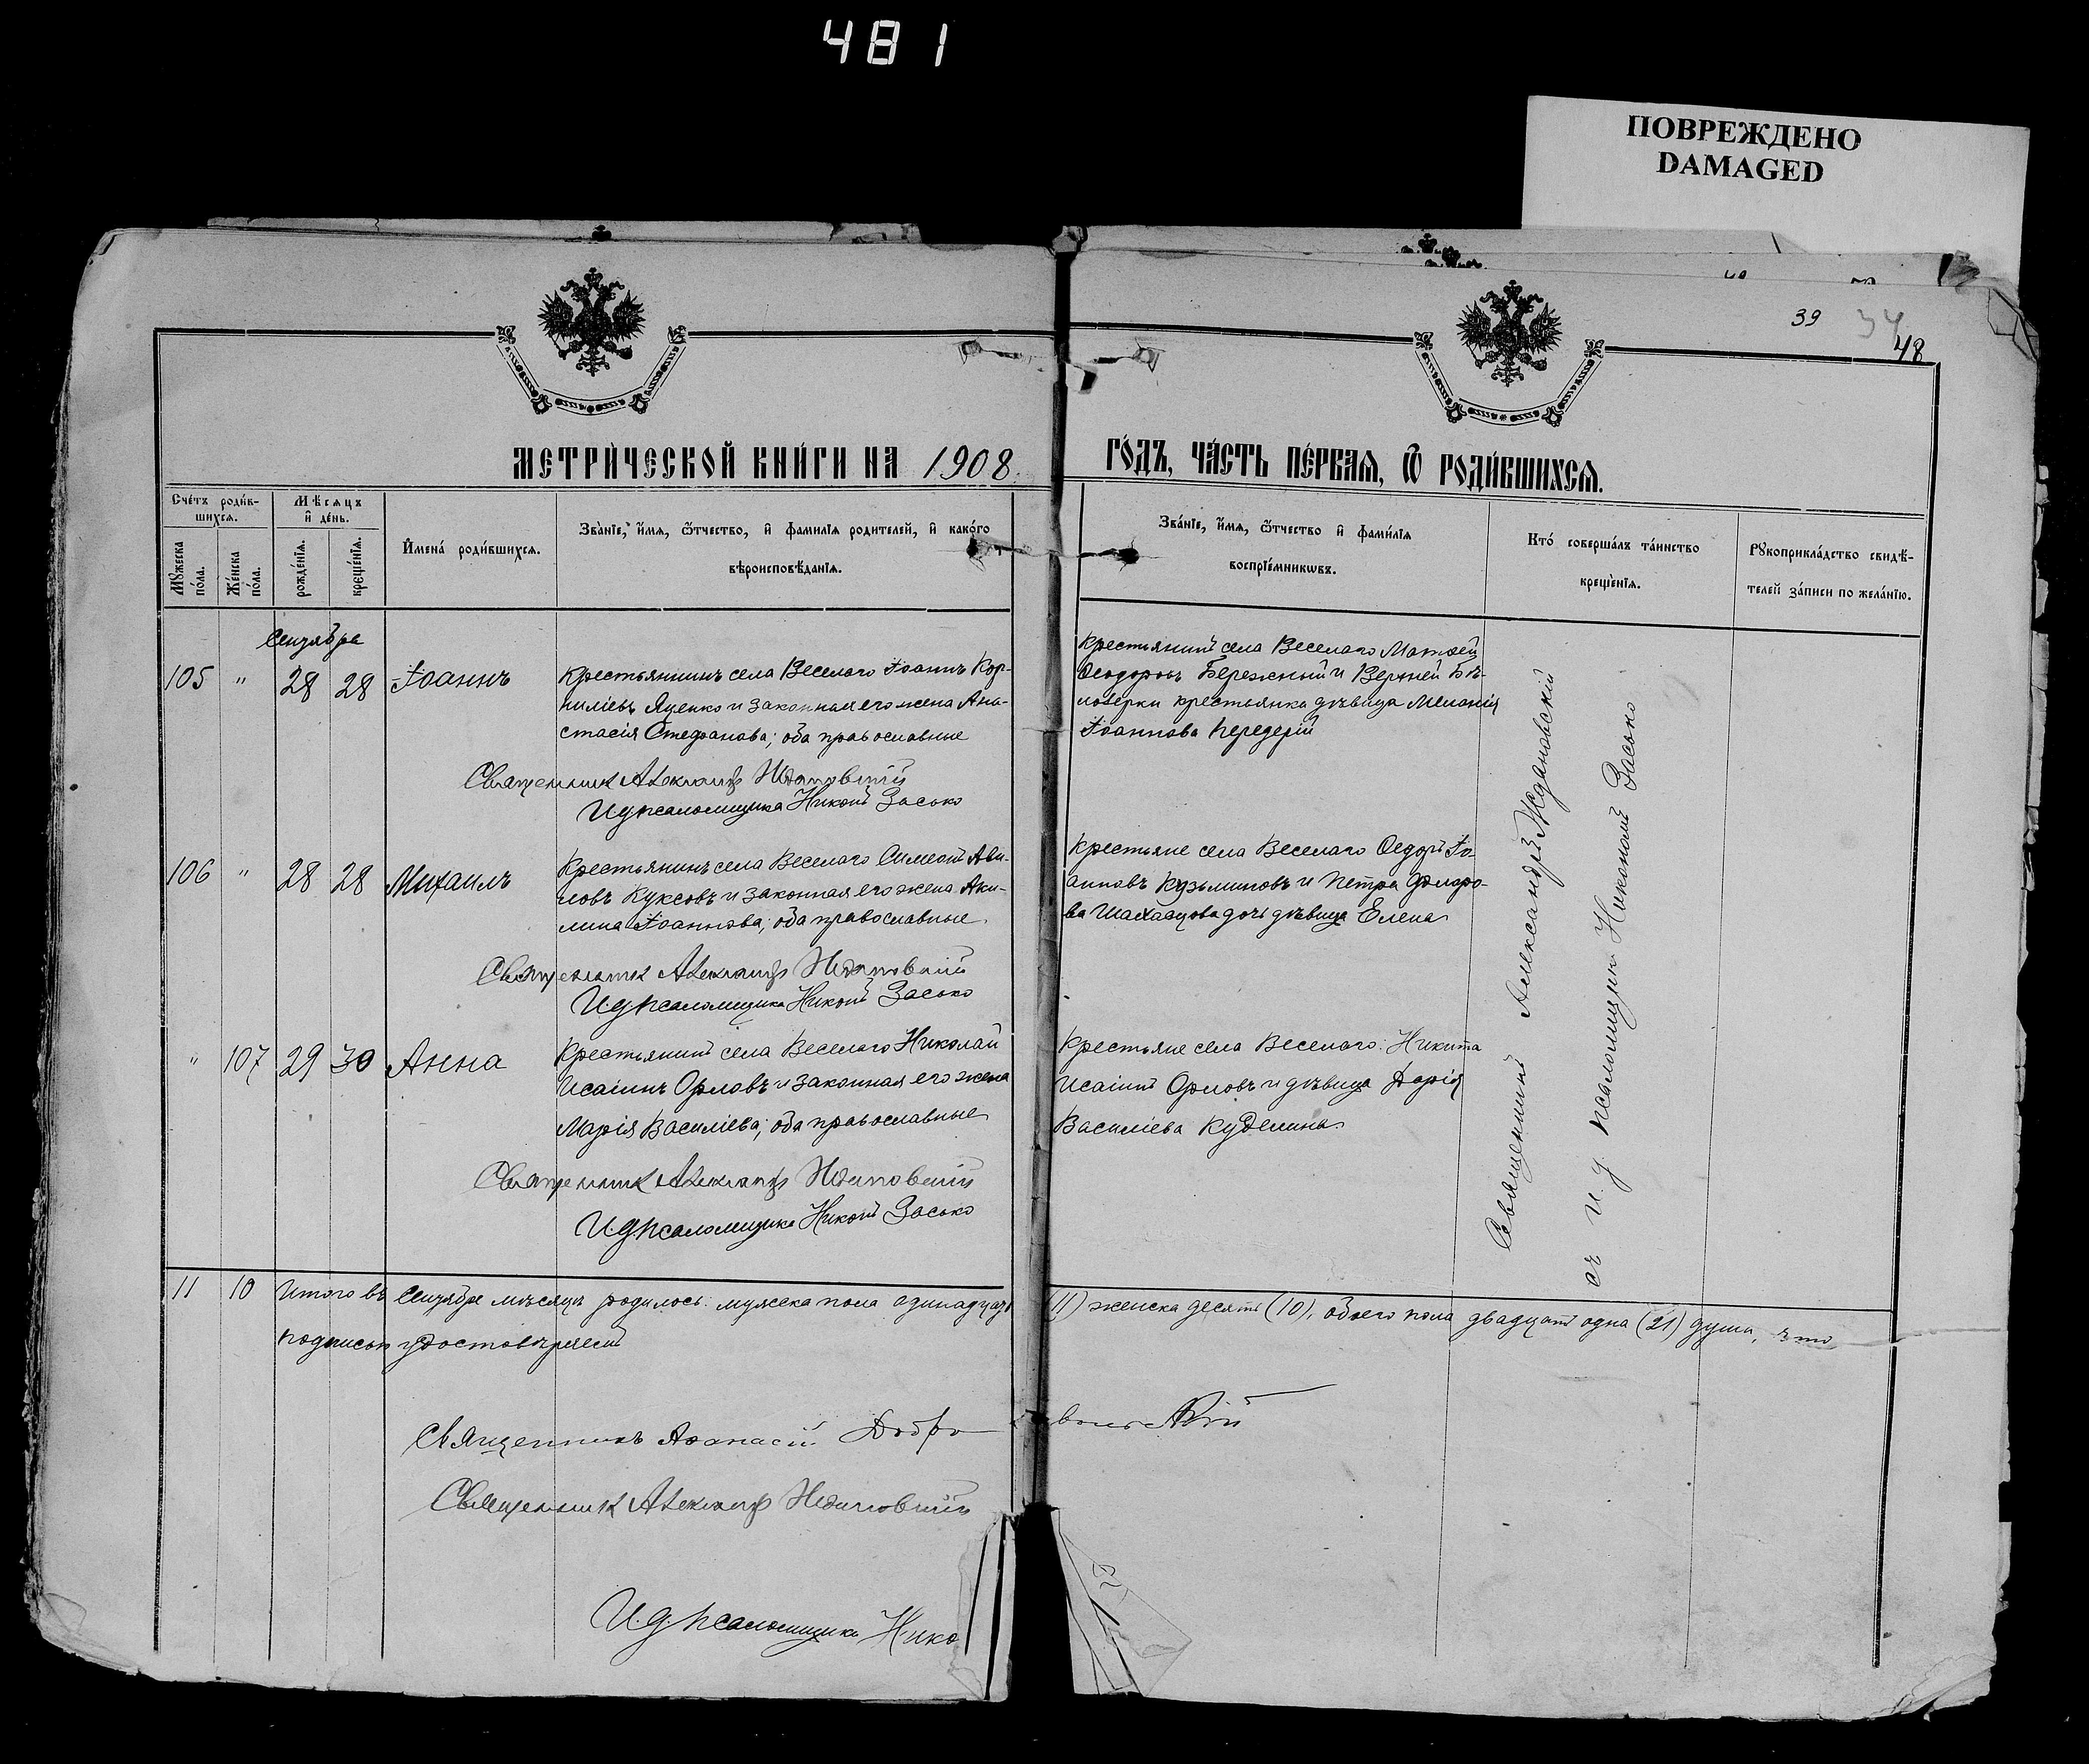 481
ПОВРЕЖДЕНО
DAMAGED
39 34
48
МЕТРИ́ЧЕСКОЙ КНИ́ГИ НА 1908 ГО́ДЪ, ЧА́СТЬ ПЕ́РВАЯ, Ѿ РОДИ́ВШИХСЯ.
Сче́тъ роди́в-
шихся.
Мѣсяцъ
и де́нь.
Мꙋжеска
по́ла.
Же́нска
по́ла.
рожде́нїѧ.
креще́нїѧ.
Имена́ роди́вшихся.
Зва́нїе, и́мя, ѻ́тчество, и фамилїя родителей, и како́го
вѣроисповѣ́данїя.
Зва́нїе, и́мя, ѻ́тчество и фами́лїя
воспрїе́мникѡвъ.
Кто́ соверша́лъ та́инство
креще́нїя.
Рꙋкоприкла́дство свидѣ́-
телей за́писи по жела́нїю.
Сентября
105 " 28 28 Іоаннъ
Крестьянинъ села Веселаго Іоаннъ Кор-
ниліевъ Яценко и законная его жена Ана-
стасія Стефанова; оба православные
Священник Александр Ждановский
И.д. псаломщика Никонъ Засько
Крестьянинъ села Веселаго Матѳей
Ѳеодоровъ Бережный и Верхней Бѣ-
лозерки крестьянка дѣвица Меланія
Іоаннова Передерій
106 " 28 28 Михаилъ
Крестьянинъ села Веселаго Симеонъ Ави-
ловъ Куксовъ и законная его жена Аки-
лина Іоаннова; оба православные
Священник Александр Ждановский
И.д. псаломщика Никонъ Засько
Крестьяне села Веселаго Ѳедоръ Іо-
анновъ Кузьминовъ и Петра Флоро-
ва дочь дѣвица Елена
" 107 29 30 Анна
Крестьянинъ села Веселаго Николай
Исаіинъ Орловъ и законная его жена
Марія Василіева; оба православные
Священник Александр Ждановский
И.д. псаломщика Никонъ Засько
Крестьяне села Веселаго: Никита
Исаіинъ Орловъ и дѣвица Дарія
Василіева Куделина
Священникъ Александръ Ждановскій
съ и. д. псаломщика Никономъ Засько
11 10 Итого въ Сентябрѣ мѣсяцѣ родилось: мужска пола одинадцать 11) женска десять (10), обоего пола двадцать одна (21) душа, что
подписью удостовѣряемъ
Священникъ Аѳанасій Добро
Священник Александр Ждановский
И.д. псаломщика Нико